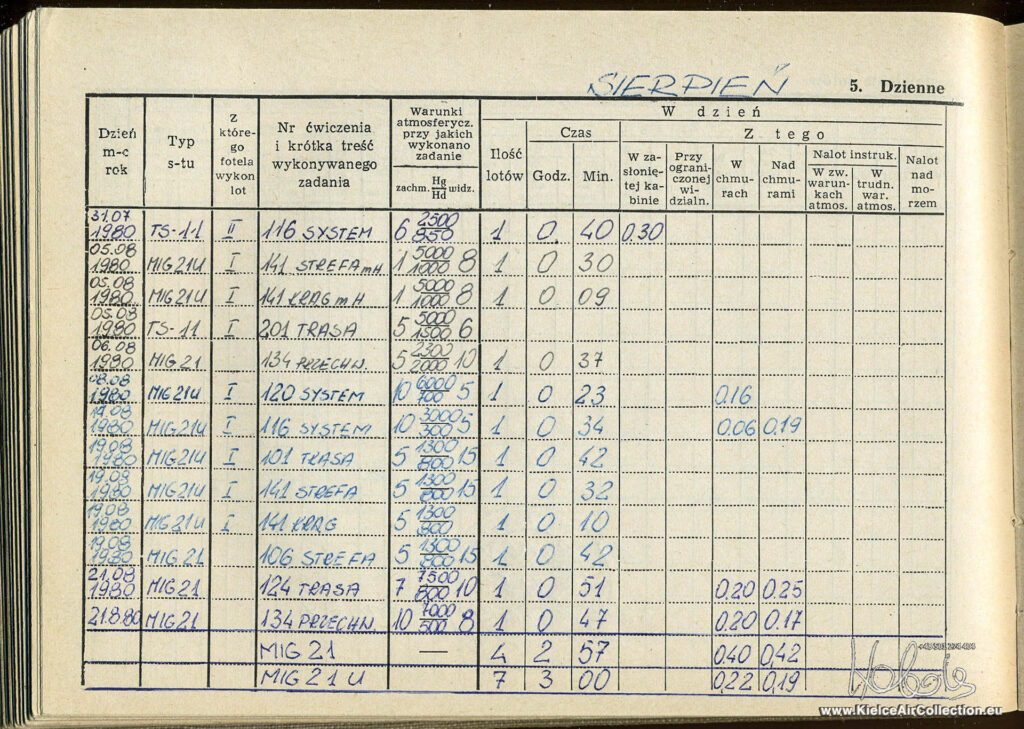 SIERPIEŃ
5. Dzienne
Dzień m-c rok
Typ s-tu
Z które-go fotela wykon lot
Nr ćwiczenia i krótka treść wykonywanego zadania
Warunki atmosferycz. przy jakich wykonano zadanie
zachm. Hg/Hd widz.
Ilość lotów
W dzień
Czas
Godz.
Min.
Z tego
W za-słonię-tej ka-binie
Przy ograni-czonej wi-dzialn.
W chmu-rach
Nad chmu-rami
Nalot instruk.
W zw. warun-kach atmos.
W trudn. war. atmos.
Nalot nad mo-rzem
31.07 1980 TS-11 II 116 SYSTEM 6 2500/850 1 0 40 0,30
05.08 1980 MIG 21U I 141 STREFA mH 1 5000/1000 8 1 0 30
05.08 1980 MIG 21U I 141 KRĄG mH 1 5000/1000 8 1 0 09
05.08 1980 TS-11 I 201 TRASA 5 5000/1500 6
06.08 1980 MIG 21 134 PRZECHW. 5 2300/2000 10 1 0 37
08.08 1980 MIG 21U I 120 SYSTEM 10 6000/700 5 1 0 23 0,16
14.08 1980 MIG 21U I 116 SYSTEM 10 3000/300 5 1 0 34 0.06 0,19
19.08 1980 MIG 21U I 101 TRASA 5 1300/800 15 1 0 42
19.08 1980 MIG 21U I 141 STREFA 5 1300/800 15 1 0 32
19.08 1980 MIG 21U I 141 KRĄG 5 1300/800 1 0 10
19.08 1980 MIG 21 106 STREFA 5 1300/800 15 1 0 42
21.08 1980 MIG 21 124 TRASA 7 7500/800 10 1 0 51 0,20 0,25
21.8.80 MIG 21 134 PRZECHW. 10 7000/500 8 1 0 47 0,20 0,17
MIG 21 — 4 2 57 0,40 0,42
MIG 21 U 7 3 00 0,22 0,19
www.KielceAirCollection.eu